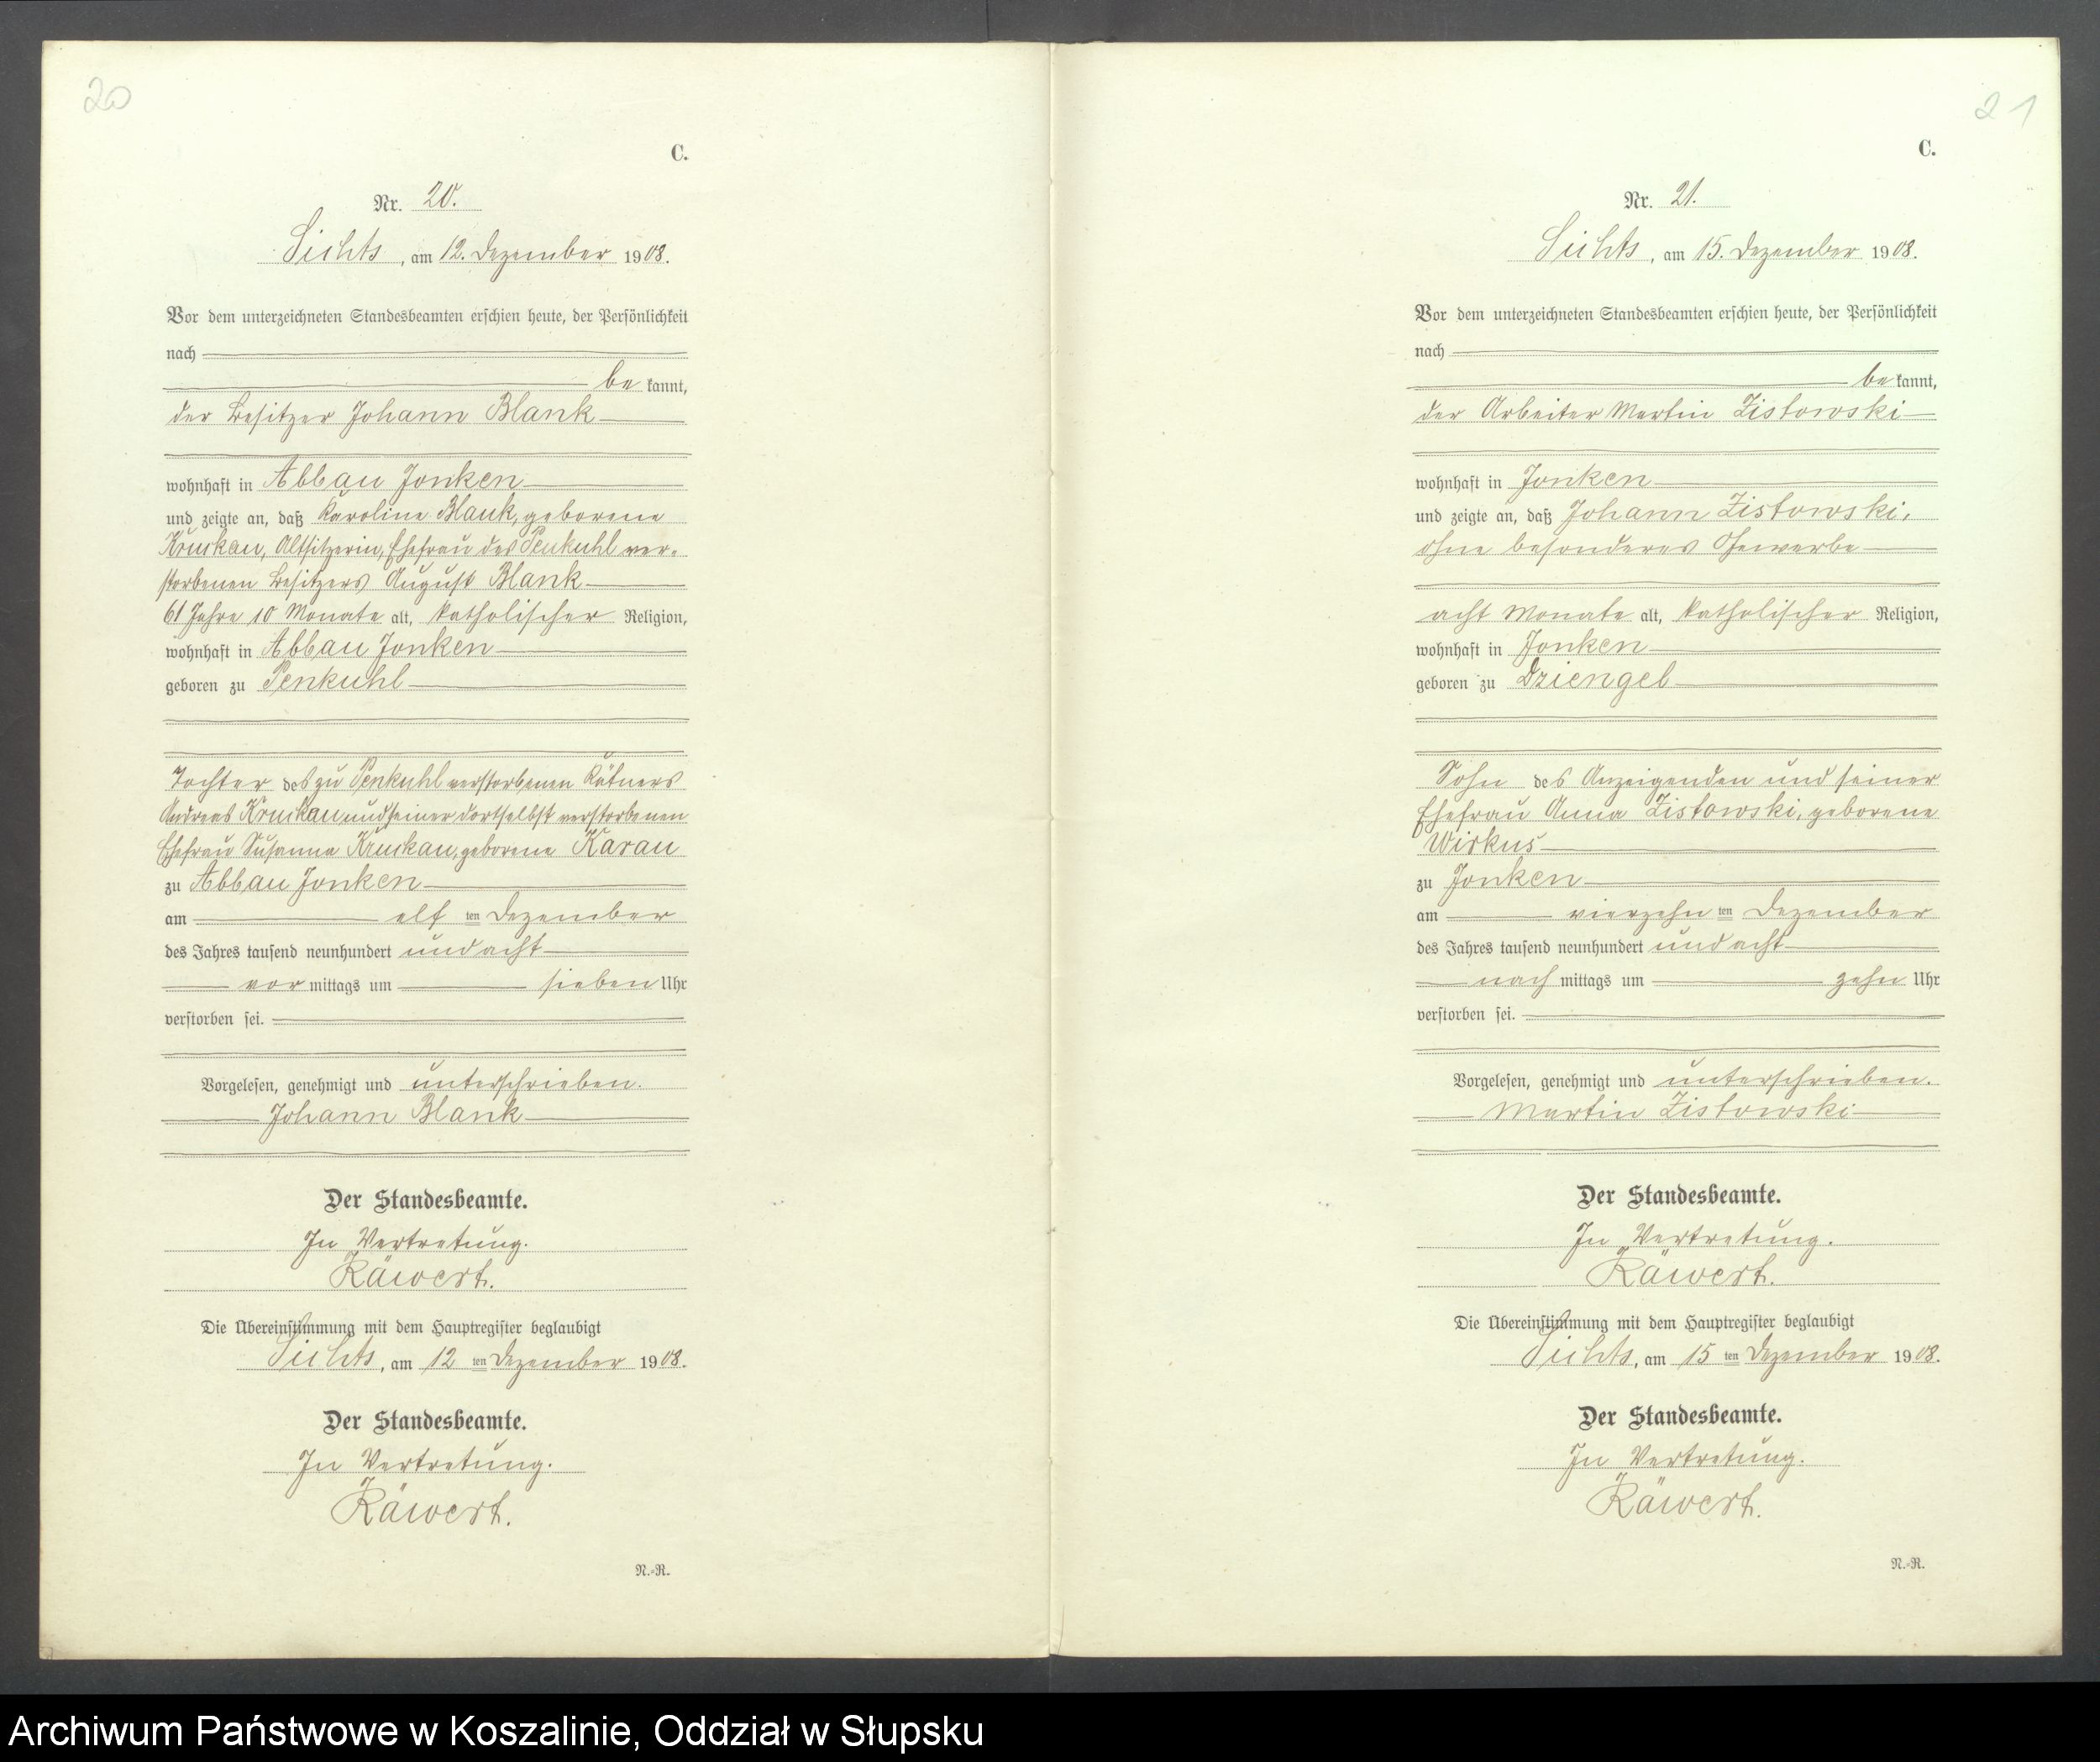 20
C.
Nr. 20.
Sichts, am 12. Dezember 1908.
Vor dem unterzeichneten Standesbeamten erschien heute, der Persönlichkeit
nach
be kannt,
der Besitzer Johann Blank
wohnhaft in Abbau Jonken
und zeigte an, daß Karoline Blank, geborene
Kruskau, Altsitzerin, Ehefrau des Penkuhl ver-
storbenen Besitzers August Blank
61 Jahre 10 Monate alt, katholischer Religion,
wohnhaft in Abbau Jonken
geboren zu Penkuhl
Tochter des zu Penkuhl verstorbenen Kätners
Andreas Kruskau und seiner dortselbst verstorbenen
Ehefrau Susanna Kruskau, geborene Karau
zu Abbau Jonken
am elf ten Dezember
des Jahres tausend neunhundert und acht
vor mittags um sieben Uhr
verstorben sei.
Vorgelesen, genehmigt und unterschrieben.
Johann Blank
Der Standesbeamte.
In Vertretung.
Räwert.
Die Übereinstimmung mit dem Hauptregister beglaubigt
Sichts, am 12 ten Dezember 1908.
Der Standesbeamte.
In Vertretung.
Räwert.
N.-R.
21
C.
Nr. 21.
Sichts, am 15. Dezember 1908.
Vor dem unterzeichneten Standesbeamten erschien heute, der Persönlichkeit
nach
be kannt,
der Arbeiter Martin Zistowski
wohnhaft in Jonken
und zeigte an, daß Johann Zistowski,
ohne besonderes Gewerbe
acht Monate alt, katholischer Religion,
wohnhaft in Jonken
geboren zu Dziengel
Sohn des Anzeigenden und seiner
Ehefrau Anna Zistowski, geborene
Wirkus
zu Jonken
am vierzehn ten Dezember
des Jahres tausend neunhundert und acht
nach mittags um zehn Uhr
verstorben sei.
Vorgelesen, genehmigt und unterschrieben.
Martin Zistowski
Der Standesbeamte.
In Vertretung.
Räwert.
Die Übereinstimmung mit dem Hauptregister beglaubigt
Sichts, am 15 ten Dezember 1908.
Der Standesbeamte.
In Vertretung.
Räwert.
N.-R.
Archiwum Państwowe w Koszalinie, Oddział w Słupsku